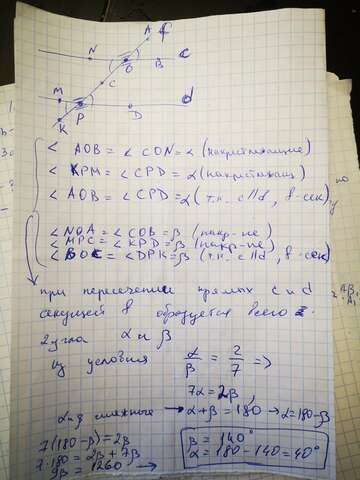 A f
N O B c
C
M P D d
K
∠ AOB = ∠ CON = α (накрестлежащие)
∠ KPM = ∠ CPD = α (накрестлежащ)
∠ AOB = ∠ CPD = α (т.к. c∥d, в-сек)
∠ NOA = ∠ COB = β (накр-ие)
∠ MPC = ∠ KPD = β (накр-ие)
∠ BOC = ∠ DPK = β (т.к. c∥d, в-сек)
при пересечении прямых c и d
секущей в образуется всего 2
2 угла α и β
из условия α/β = 2/7 =>
7α = 2β
α и β смежные → α + β = 180, → α = 180 - β
7(180 - β) = 2β
7·180 = 2β + 7β
9β = 1260 →
β = 140°
α = 180 - 140 = 40°